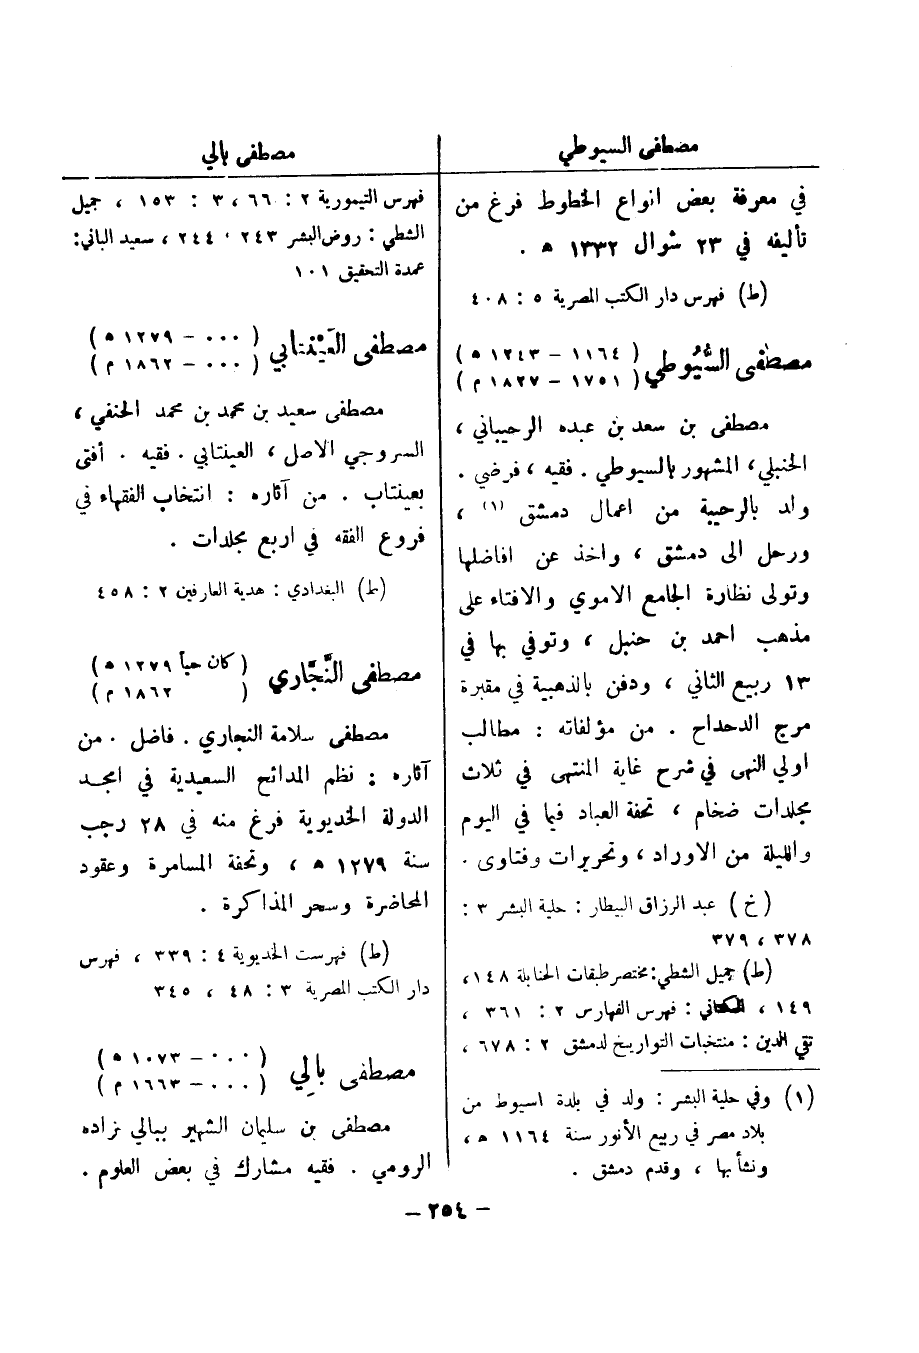 مصطفى السيوطي
في معرفة بعض انواع الخطوط فرغ من
تأليفه في ٢٣ شوال ١٣٣٢ ه .
(ط) فهرس دار الكتب المصرية ٥ : ٤٠٨
مصطفى السُّيُوطي ( ١١٦٤ – ١٢٤٣ ه )
( ١٧٥١ – ١٨٢٧ م )
مصطفى بن سعد بن عبده الرحيباني ،
الحنبلي ، المشهور بالسيوطي . فقيه ، فرضي .
ولد بالرحيبة من اعمال دمشق (١) ،
ورحل الى دمشق ، واخذ عن افاضلها
وتولى نظارة الجامع الاموي والافتاء على
مذهب احمد بن حنبل ، وتوفي بها في
١٣ ربيع الثاني ، ودفن بالذهبية في مقبرة
مرج الدحداح . من مؤلفاته : مطالب
اولي النهى في شرح غاية المنتهى في ثلاث
مجلدات ضخام ، تحفة العباد فيما في اليوم
والليلة من الاوراد ، وتحريرات وفتاوى .
(خ) عبد الرزاق البيطار : حلية البشر ٣ :
٣٧٨ ، ٣٧٩
(ط) جميل الشطي : مختصر طبقات الحنابلة ١٤٨ ،
١٤٩ ، الكتاني : فهرس الفهارس ٢ : ٣٦١ ،
تقي الدين : منتخبات التواريخ لدمشق ٢ : ٦٧٨ ،
(١) وفي حلية البشر : ولد في بلدة اسيوط من
بلاد مصر في ربيع الأنور سنة ١١٦٤ ه ،
ونشأ بها ، وقدم دمشق .
مصطفى بالي
فهرس التيمورية ٢ : ٦٦ ، ٣ : ١٥٣ ، جميل
الشطي : روض البشر ٢٤٣ ، ٢٤٤ ، سعيد الباني :
عمدة التحقيق ١٠١
مصطفى العَيْنتابي ( ٠٠٠ – ١٢٧٩ ه )
( ٠٠٠ – ١٨٦٢ م )
مصطفى سعيد بن محمد بن محمد الحنفي ،
السروجي الاصل ، العينتابي . فقيه . أفتى
بعينتاب . من آثاره : انتخاب الفقهاء في
فروع الفقه في اربع مجلدات .
(ط) البغدادي : هدية العارفين ٢ : ٤٥٨
مصطفى النَّجَّاري ( كان حياً ١٢٧٩ ه )
( ١٨٦٢ م )
مصطفى سلامة النجاري . فاضل . من
آثاره : نظم المدائح السعيدية في امجد
الدولة الخديوية فرغ منه في ٢٨ رجب
سنة ١٢٧٩ ه ، وتحفة المسامرة وعقود
المحاضرة وسحر المذاكرة .
(ط) فهرست الخديوية ٤ : ٣٣٩ ، فهرس
دار الكتب المصرية ٣ : ٤٨ ، ٣٤٥
مصطفى بالِي ( ٠٠٠ – ١٠٧٣ ه )
( ٠٠٠ – ١٦٦٣ م )
مصطفى بن سليمان الشهير ببالي زاده
الرومي . فقيه مشارك في بعض العلوم .
– ٢٥٤ –